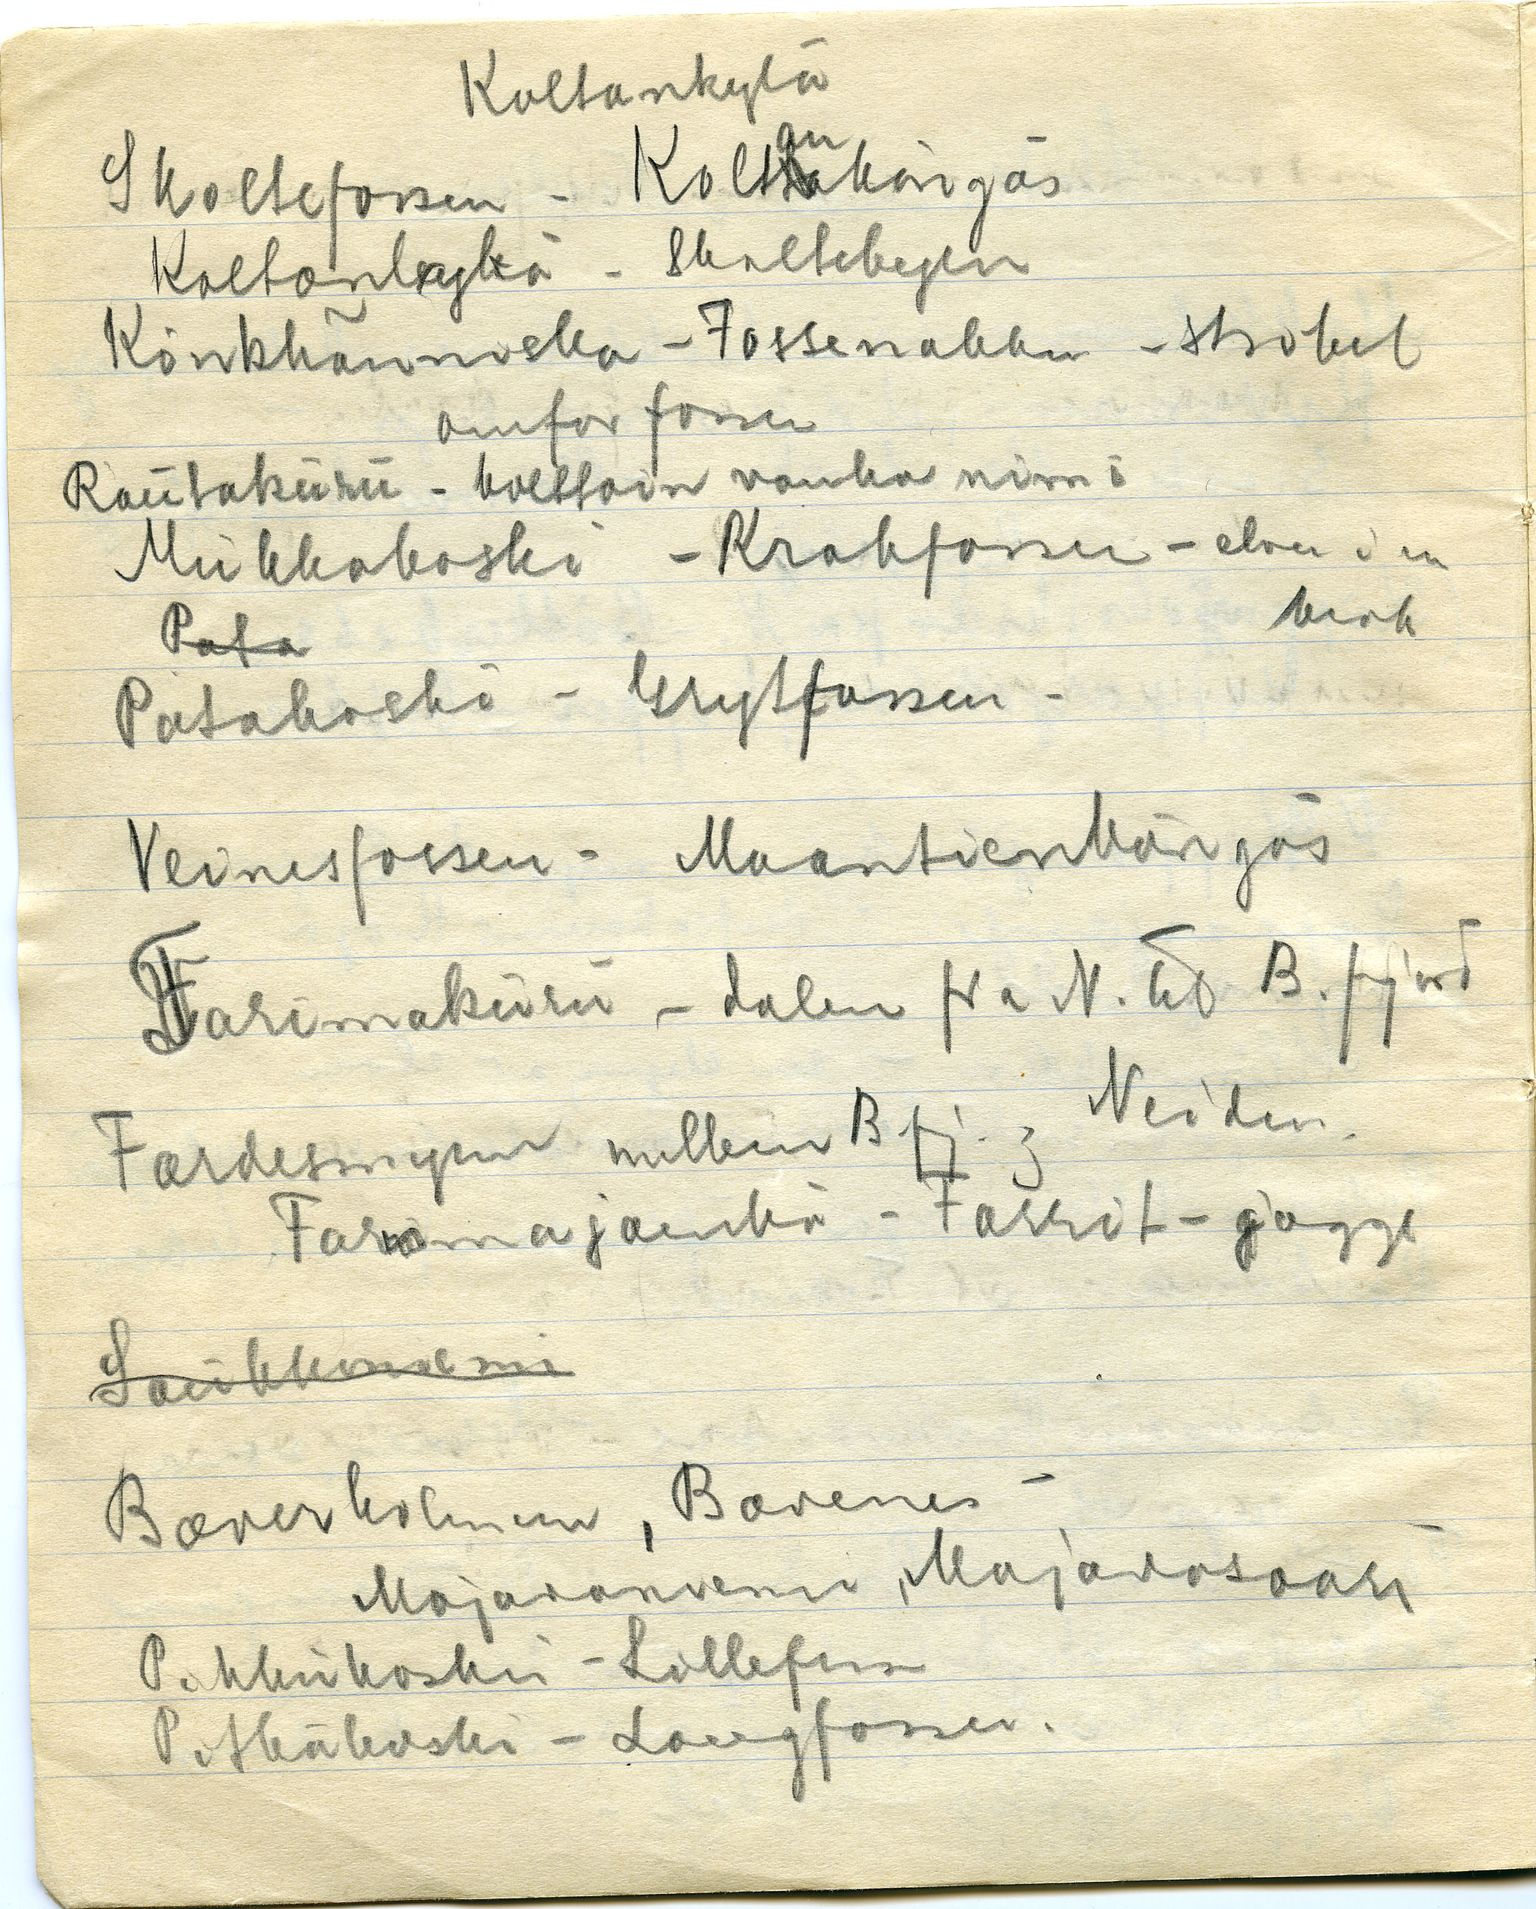 Koltankylä
Skoltefossen - Koltankøngäs
Koltankylä - Skoltebyen
Könkhänniska - Fossenakken - strøket
ovnfor fossen
Rautakuru - kolttain vanha nimi
Mukkakoski - Krokfossen - elven i en
krok
Pata
Patakoski - Grytfossen -
Veinesfossen - Maantienköngäs
Farimakuru - dalen fra N. til B. fjord
Fardesmyren mellem B.fj. og Neiden.
Farimajænkä - Farrit-jægge
Laukkuniemi
Bæverholmen, Bævernes -
Majavaniemi, Majavasaari
Pikkukoski - Lillefoss
Pitkäkoski - Langfossen.